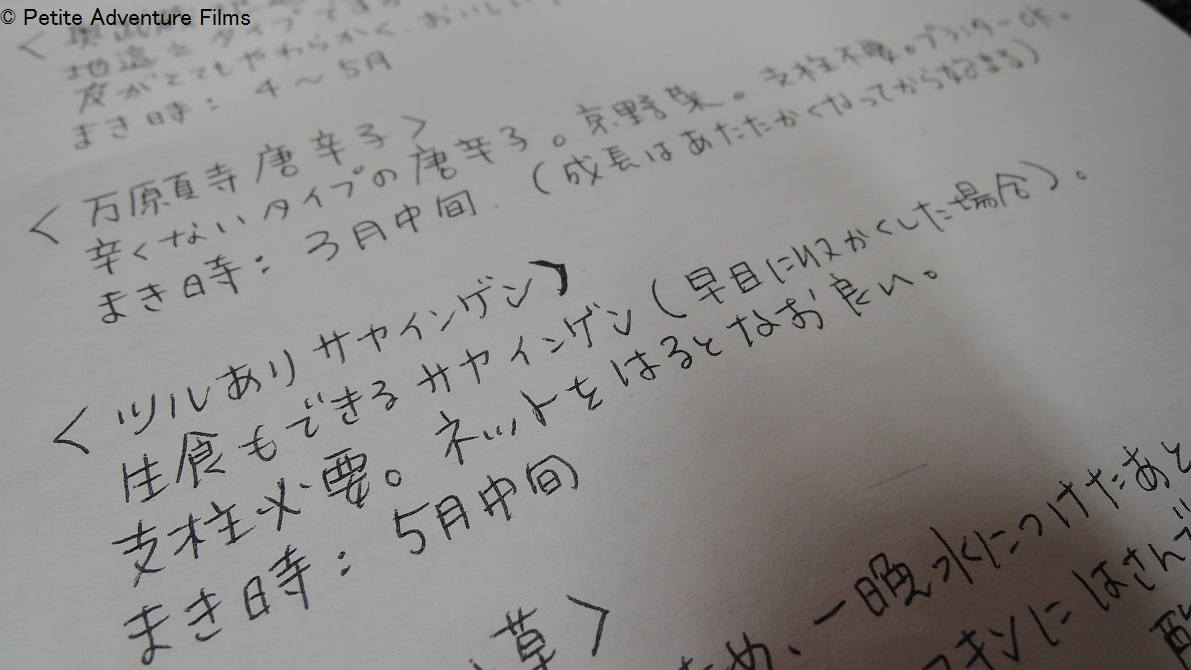 © Petite Adventure Films
地這えタイプです
皮がとてもやわらかく、おいしい
まき時: 4〜5月
<万願寺唐辛子>
辛くないタイプの唐辛子。京野菜。支柱不要。プランターOK。
まき時: 3月中旬. (成長はあたたかくなってから始まる)
<ツルありサヤインゲン>
生食もできるサヤインゲン(早目に収かくした場合)。
支柱必要。ネットをはるとなお良い。
まき時: 5月中旬
草>
ため、一晩水につけたあと
キンにはさんで